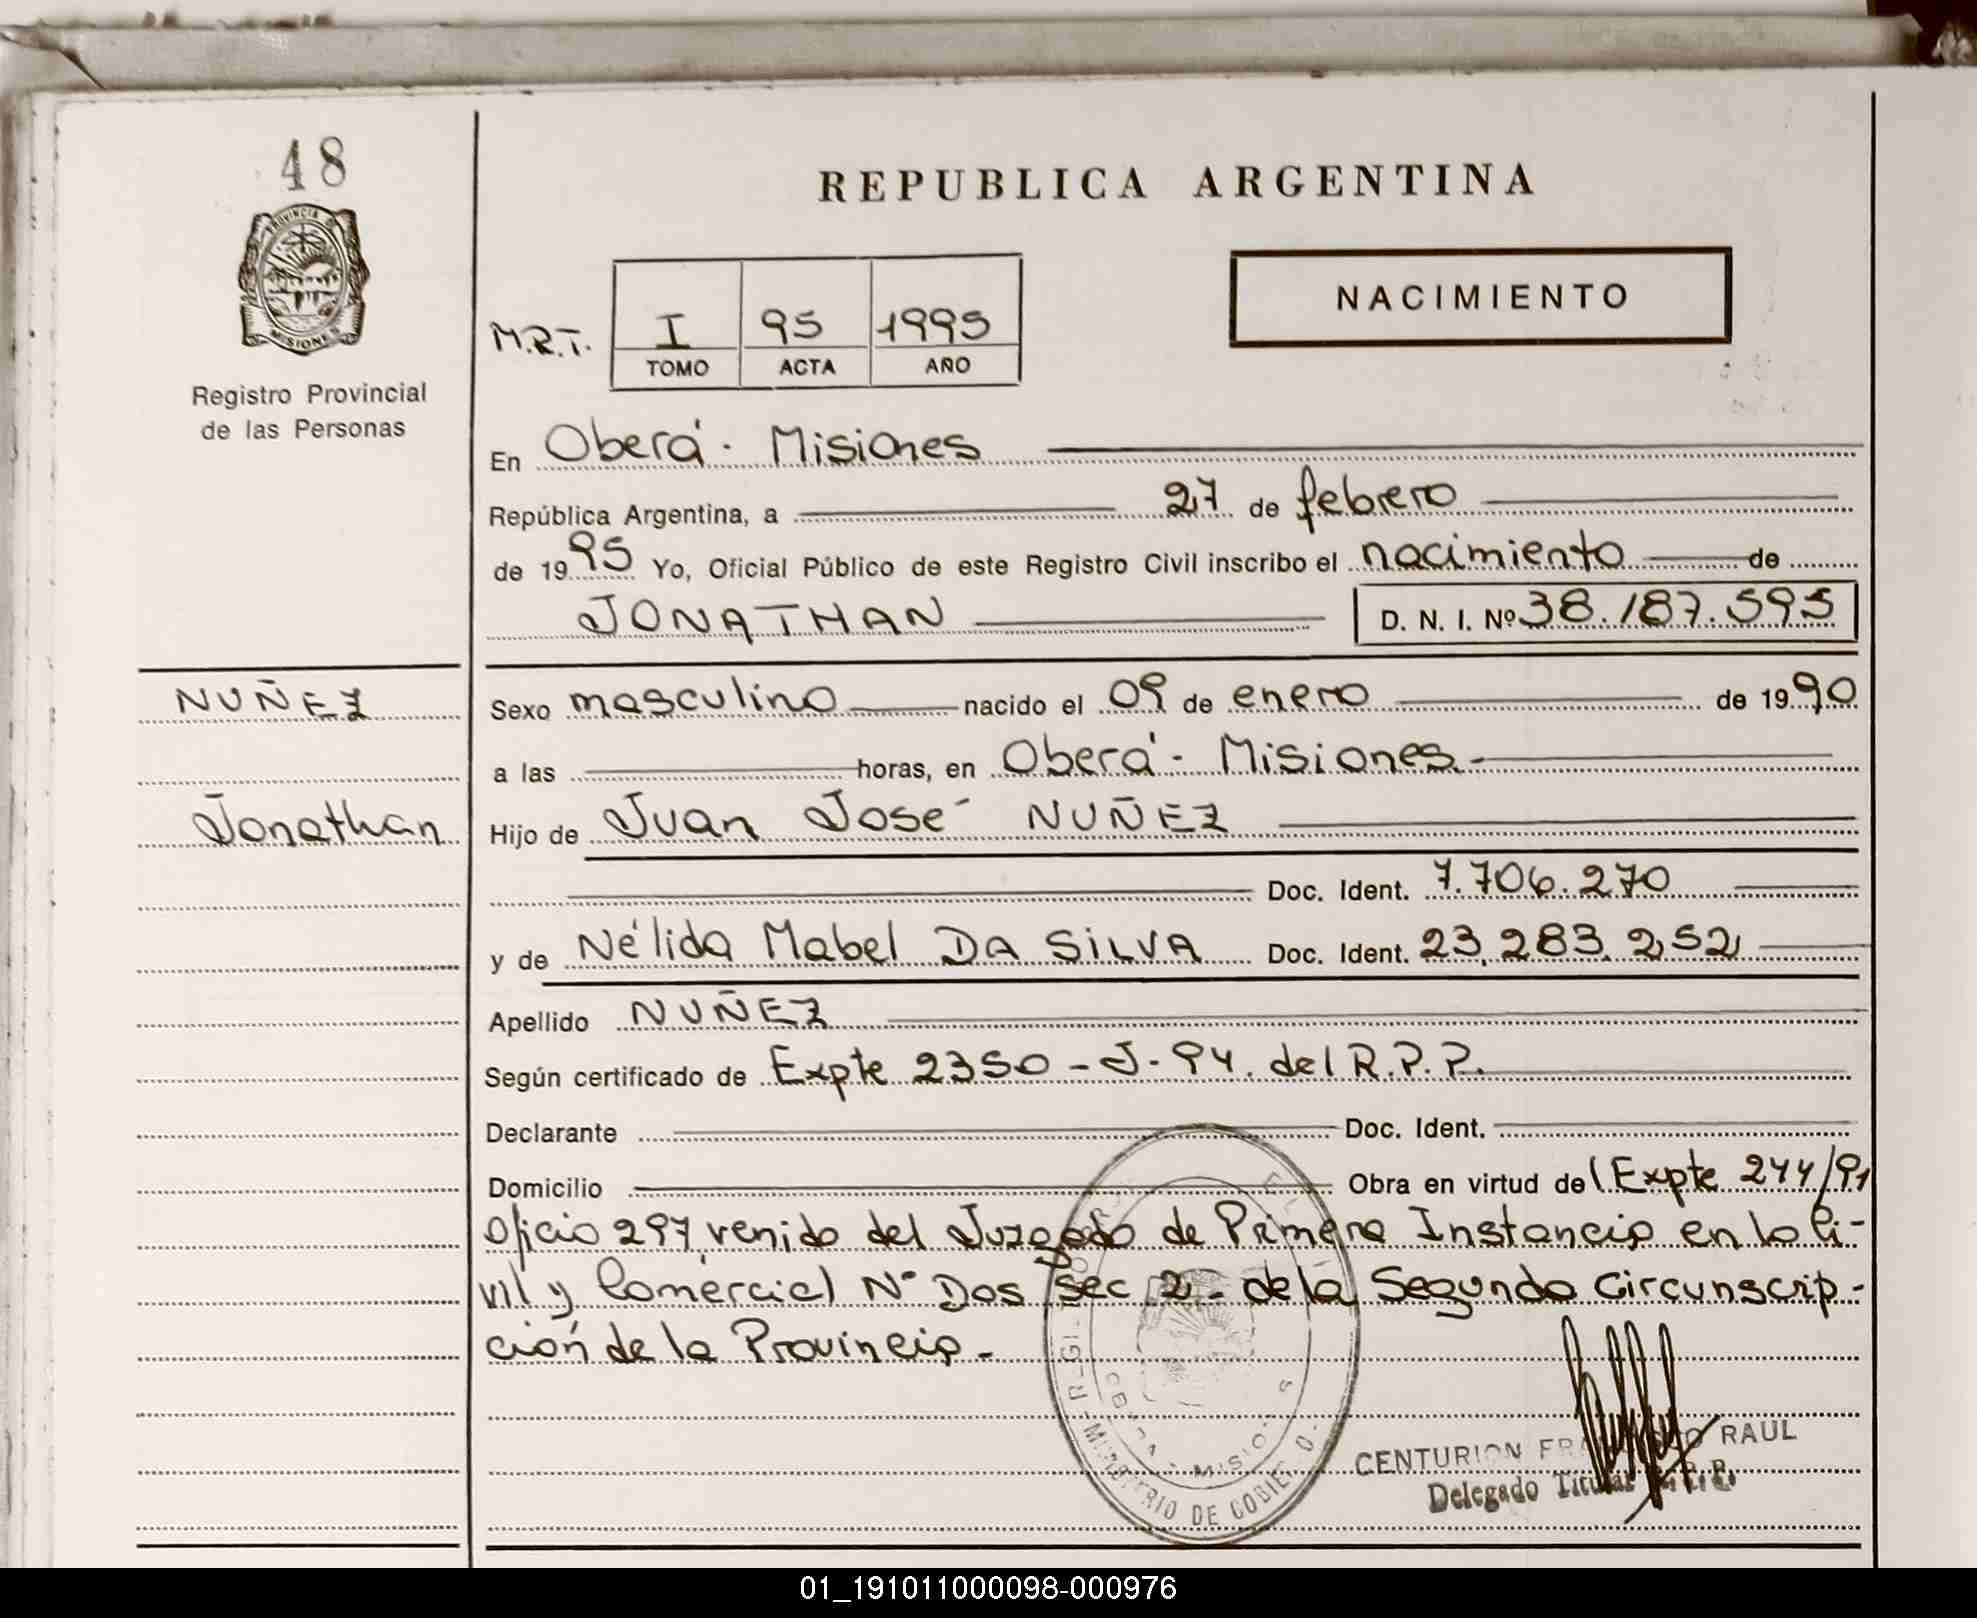 48
PROVINCIA D
MISIONES
Registro Provincial
de las Personas
REPUBLICA ARGENTINA
NACIMIENTO
M.R.T. I 95 1995
TOMO ACTA AÑO
En Oberá - Misiones
República Argentina, a 27 de febrero
de 1995 Yo, Oficial Público de este Registro Civil inscribo el nacimiento de
JONATHAN D. N. I. Nº 38.187.595
NUÑEZ
Jonathan
Sexo masculino nacido el 09 de enero de 1990
a las horas, en Oberá - Misiones.-
Hijo de Juan José NUÑEZ
Doc. Ident. 7.706.270
y de Nélida Mabel DA SILVA Doc. Ident. 23.283.252
Apellido NUÑEZ
Según certificado de Expte 2350 - J - 94. del R.P.P.
Declarante Doc. Ident.
Domicilio Obra en virtud del Expte 244/91
Oficio 297 venido del Juzgado de Primera Instancia en lo Ci-
vil y Comercial Nº Dos Sec 2 - de la Segunda Circunscrip-
ción de la Provincia -
MINISTERIO DE GOBIERNO
CENTURION FRANCISCO RAUL
Delegado Titular R.P.P.
01_191011000098-000976